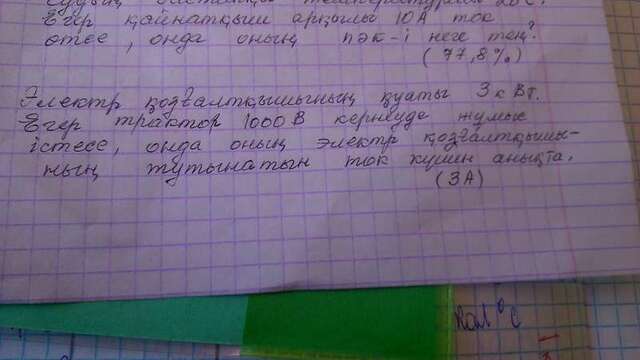 Судың бастапқы температурасы 20°С.
Егер қайнатқыш арқылы 10А ток
өтсе, онда оның пәк-і неге тең?
(77,8%)
Электр қозғалтқышының қуаты 3 кВт.
Егер трактор 1000 В кернеуде жұмыс
істесе, онда оның электр қозғалтқышы-
ның тұтынатын ток күшін анықта.
(3А)
кал °с